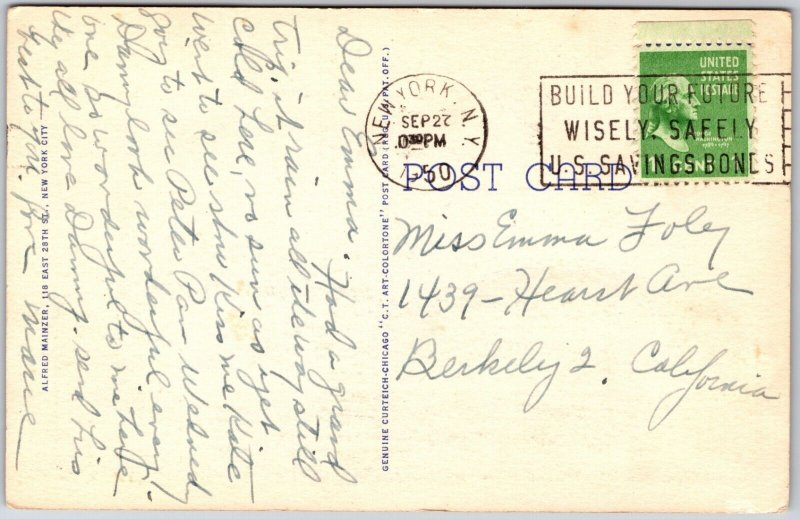 Dear Emma. Had a grand
trip, it rain all the way still
cold here, no sun as yet
went to see show Kiss me Kate
going to see Peter Pan Wednesday
Danny look wonderful every-
one so wonderful to me here
we all love Danny. send his
best to you. Love Marie
ALFRED MAINZER, 118 EAST 28TH ST., NEW YORK CITY
GENUINE CURTEICH-CHICAGO "C.T. ART-COLORTONE" POST CARD (REG. U.S. PAT. OFF.)
NEW YORK, N.Y.
SEP 27
PM
1950
BUILD YOUR FUTURE
WISELY SAFELY
U.S. SAVINGS BONDS
UNITED
STATES
POSTAGE
WASHINGTON
POST CARD
Miss Emma Foley
1439-Hearst Ave
Berkeley 2. California